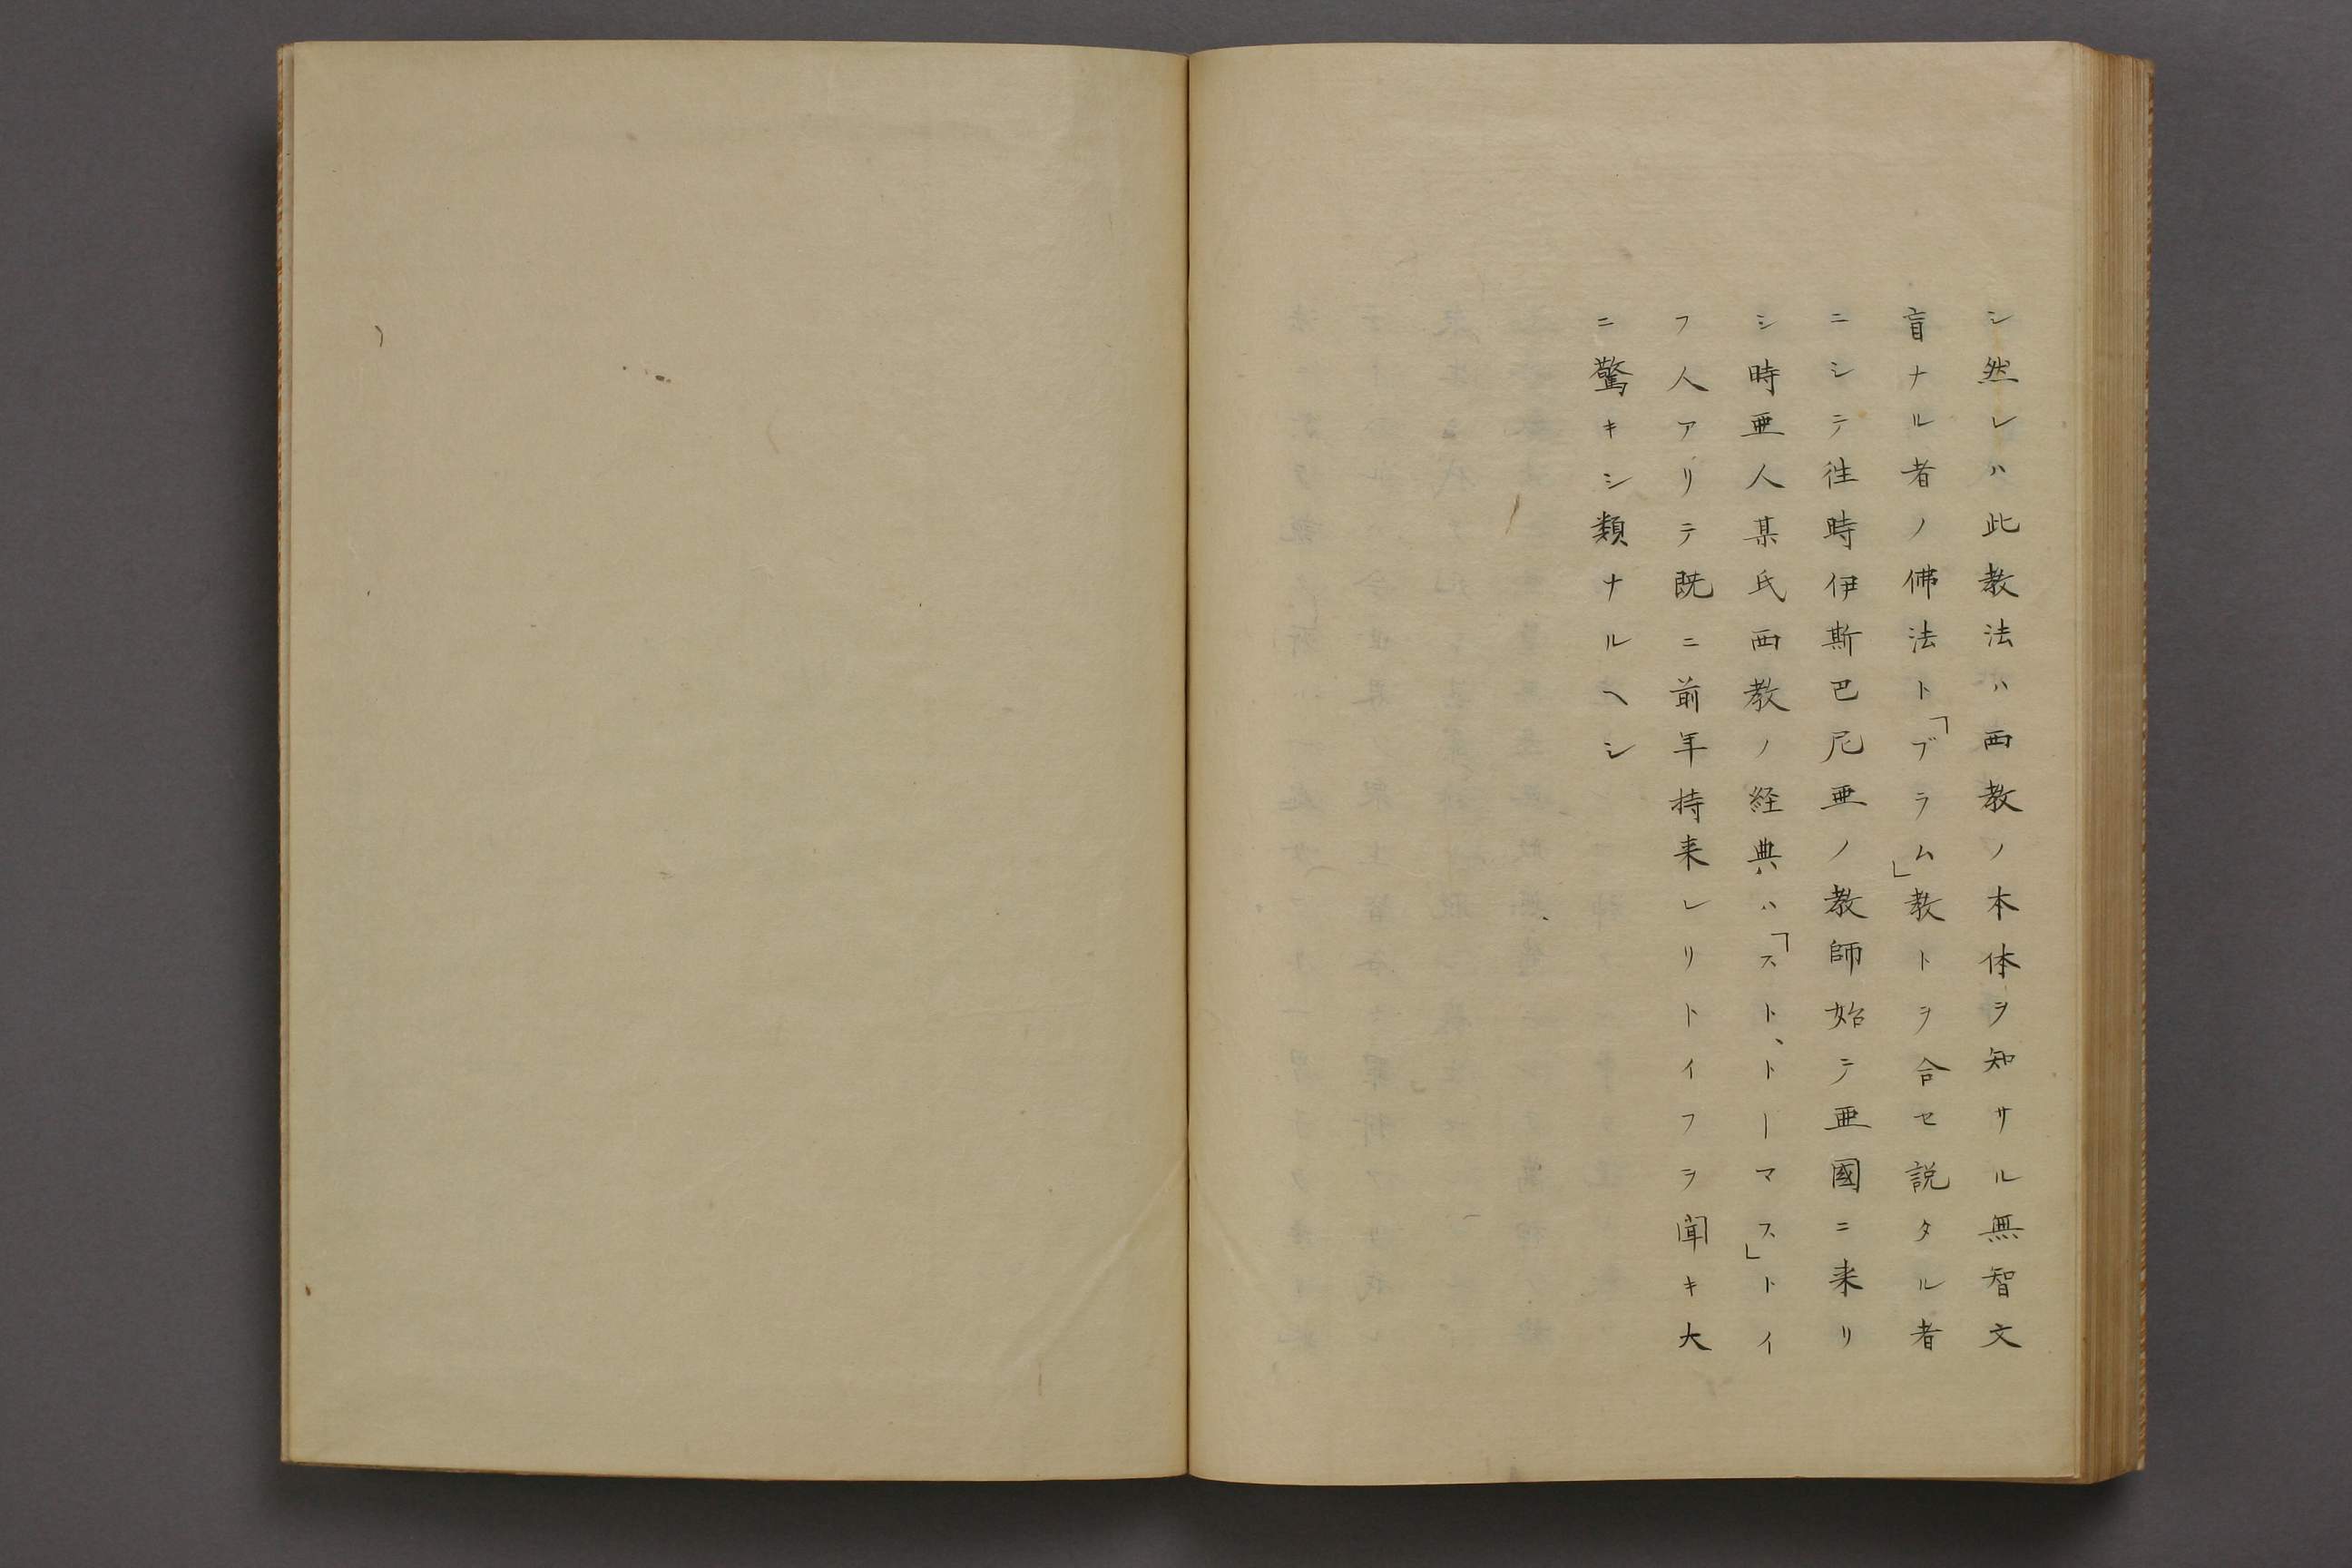 シ然レハ此教法ハ西教ノ本体ヲ知サル無智文
盲ナル者ノ佛法ト「ブラム」教トヲ合セ説タル者
ニシテ徃時伊斯巴尼亜ノ教師始テ亜國ニ来リ
シ時亜人某氏西教ノ経典ハ「スト、トーマス」トイ
フ人アリテ既ニ前年持来レリトイフヲ聞キ大
ニ驚キシ類ナルヘシ